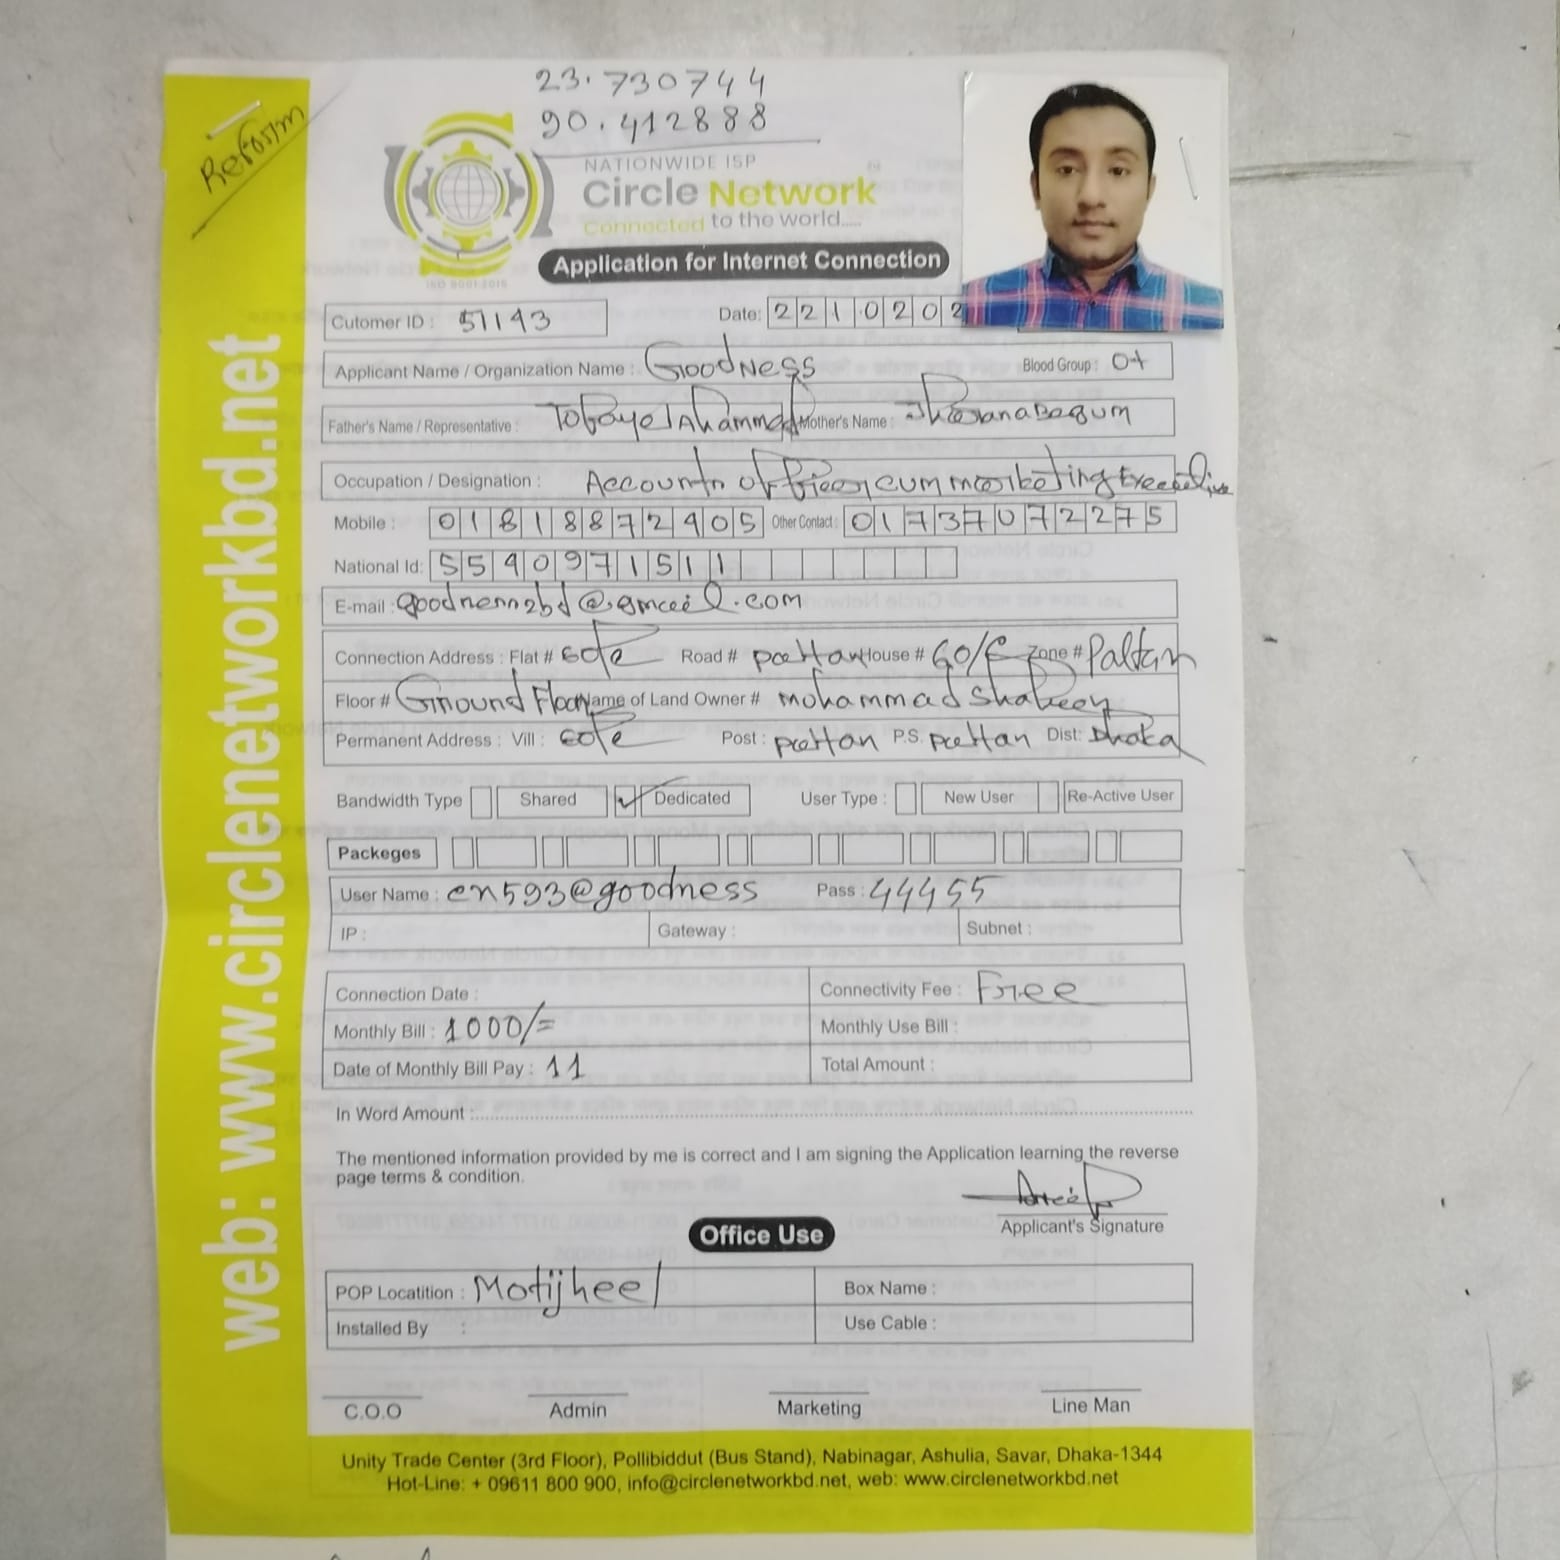 23.730744
90.412888
Reform
NATIONWIDE ISP
Circle Network
Connected to the world.....
ISO 9001:2015
Application for Internet Connection
Cutomer ID : 51143
Date: 2 2 1 0 2 0 2
Applicant Name / Organization Name : Goodness Blood Group : O+
Father's Name / Representative : Tofayel Ahammed Mother's Name :
Occupation / Designation : Accounts officer cum marketing Executive
Mobile : 01818872405 Other Contact : 01737072275
National Id: 5540971511
E-mail : goodness2bd@gmail.com
Connection Address : Flat # Road # paltan House # 60/ Zone # Paltan
Floor # Ground Floor Name of Land Owner # mohammad
Permanent Address : Vill : Post : paltan P.S. paltan Dist: Dhaka
Bandwidth Type Shared ✓ Dedicated User Type : New User Re-Active User
Packeges
User Name : cn593@goodness Pass : 44455
IP : Gateway : Subnet :
Connection Date : Connectivity Fee : Free
Monthly Bill : 1000/= Monthly Use Bill :
Date of Monthly Bill Pay : 11 Total Amount :
In Word Amount :
The mentioned information provided by me is correct and I am signing the Application learning the reverse
page terms & condition.
Applicant's Signature
Office Use
POP Locatition : Motijheel Box Name :
Installed By : Use Cable :
C.O.O Admin Marketing Line Man
Unity Trade Center (3rd Floor), Pollibiddut (Bus Stand), Nabinagar, Ashulia, Savar, Dhaka-1344
Hot-Line: + 09611 800 900, info@circlenetworkbd.net, web: www.circlenetworkbd.net
web: www.circlenetworkbd.net